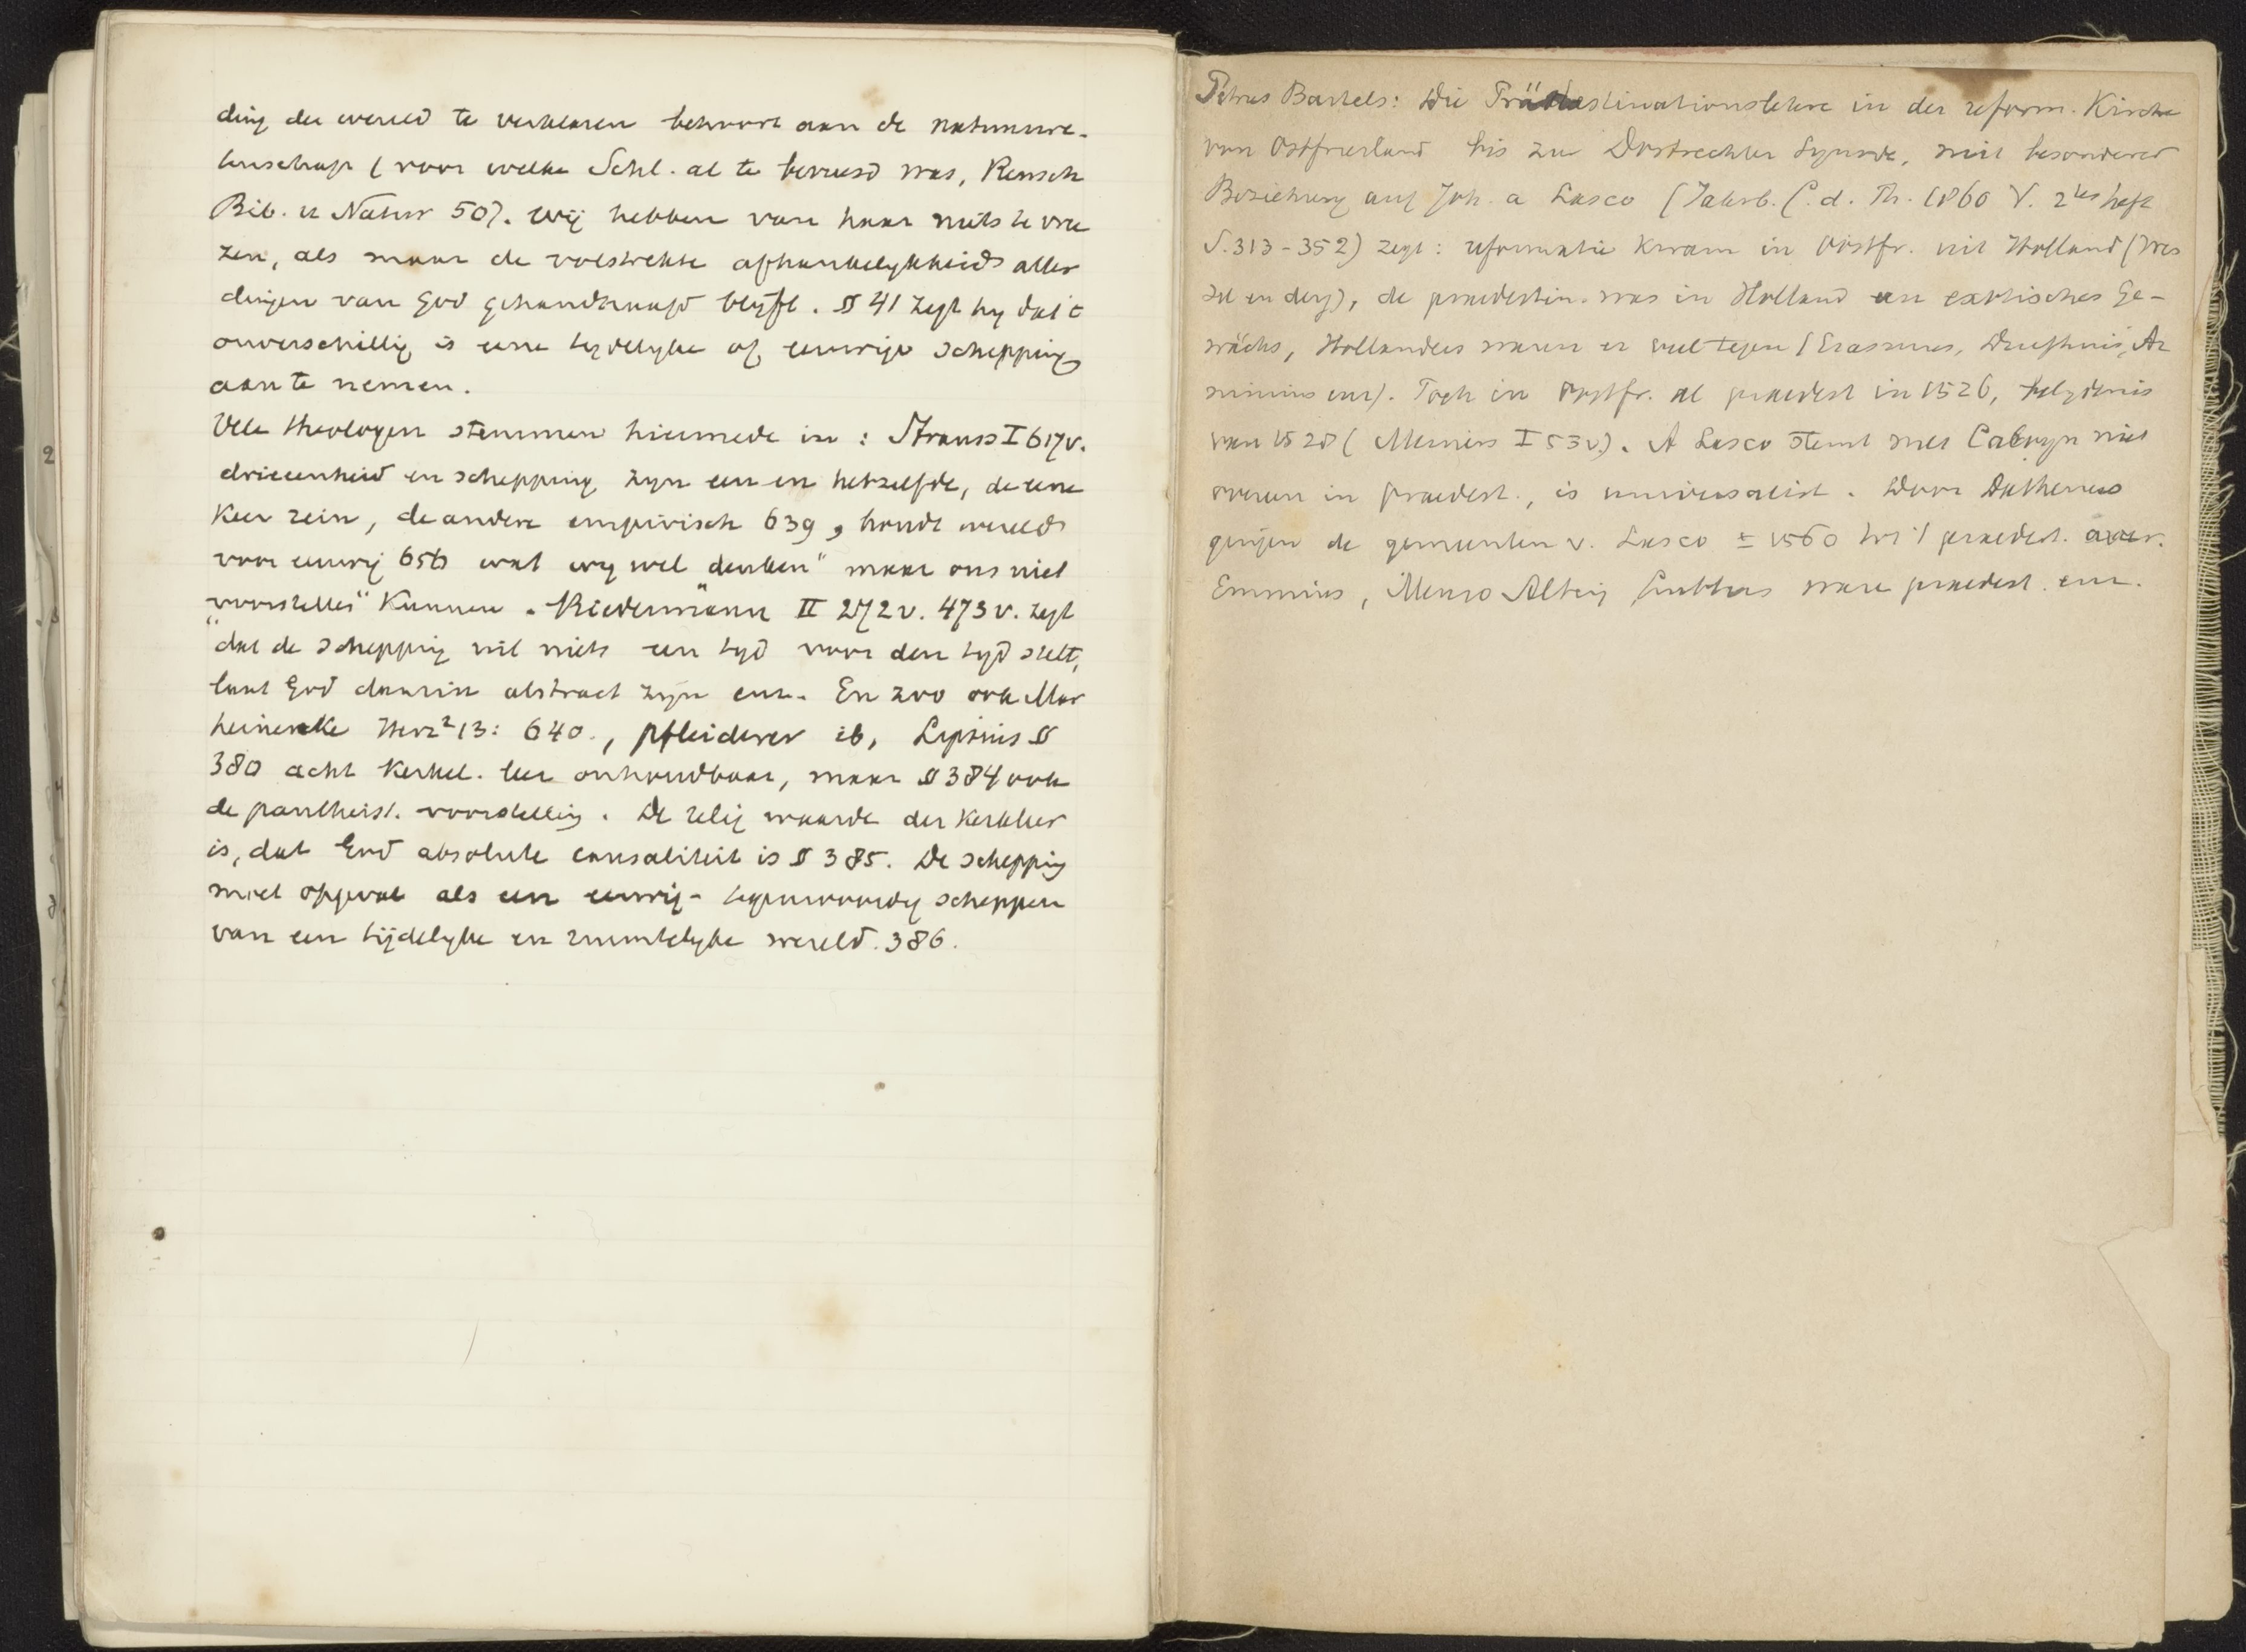 ding der wereld te verklaren behoort aan de natuurwe-
tenschap (voor welke Schl. al te bevreesd was, Reusch
Bib. u Natur 50). Wij hebben van haar niets te vree
zen, als maar de volstrekte afhankelykheid aller
dingen van God gehandhaafd blyft. § 41 zegt hy dat 't
onverschillig is eene tydelyke of eeuwige schepping
aan te nemen.
Vele theologen stemmen hiermede in : Strauss I 617v.
drieeenheid en schepping zyn een en hetzelfde, de eene
keer rein, de andere empirisch 639, houdt wereld
voor eeuwig 656 wat wy wel "denken" maar ons niet
"voorstellen" kunnen. Biedermann II 272v. 473v. zegt
dat de schepping uit niets een tyd voor den tyd stelt,
laat God daarin abstract zyn enz. En zoo ook Mar
heineke Herz² 13: 640., Pfleiderer ib, Lipsius §
380 acht kerkel. leer onhoudbaar, maar § 384 ook
de pantheist. voorstelling. De relig waarde der kerkleer
is, dat God absolute causaliteit is § 385. De schepping
moet opgevat als een eeuwig-tegenwoordig scheppen
van een tijdelyke en ruimtelyke wereld. 386.
Petrus Bartels: Die Prädestinationslehre in der reform. Kirche
von Ostfriesland bis zur Dordrechter Synode, mit besonderer
Beziehung auf Joh. a Lasco (Jahrb. f. d. Th. 1860 V. 2tes heft
S. 313-352) zegt: reformatie kwam in Oostfr. uit Holland (Wes
sel en derg), de praedestin. was in Holland een exotisches Ge-
wächs, Hollanders waren er veel tegen (Erasmus, Ar
minius enz). Toch in Oostfr. al praedest in 1526, belydenis
van 1528 (Meiners I 53v). A Lasco stemt met Calvyn niet
overeen in praedest., is universalist. Door Dathenus
gingen de gemeenten v. Lasco ± 1560 tot 't praedest. over.
Emmius, Menso Alting, Lubbertus ware praedest. enz.